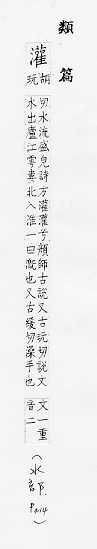 類篇
灌
胡玩
切水流盛皃詩方灌灌兮顏師古說又古玩切說文
水出廬江雩婁北入淮一曰溉也又古緩切澡手也
文一重音二
(水部 P.414)